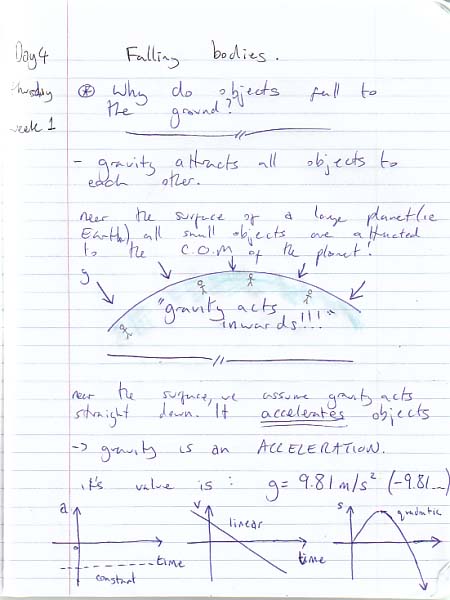 Day 4
Falling bodies.
Thursday
week 1
* Why do objects fall to
the ground?
- gravity attracts all objects to
each other.
near the surface of a large planet (ie
Earth) all small objects are attracted
to the C.O.M of the planet!
g
"gravity acts
inwards!!!"
near the surface, we assume gravity acts
straight down. It accelerates objects
-> gravity is an ACCELERATION.
it's value is : g = 9.81 m/s² (-9.81...)
a
v
s
linear
quadratic
o
time
time
constant